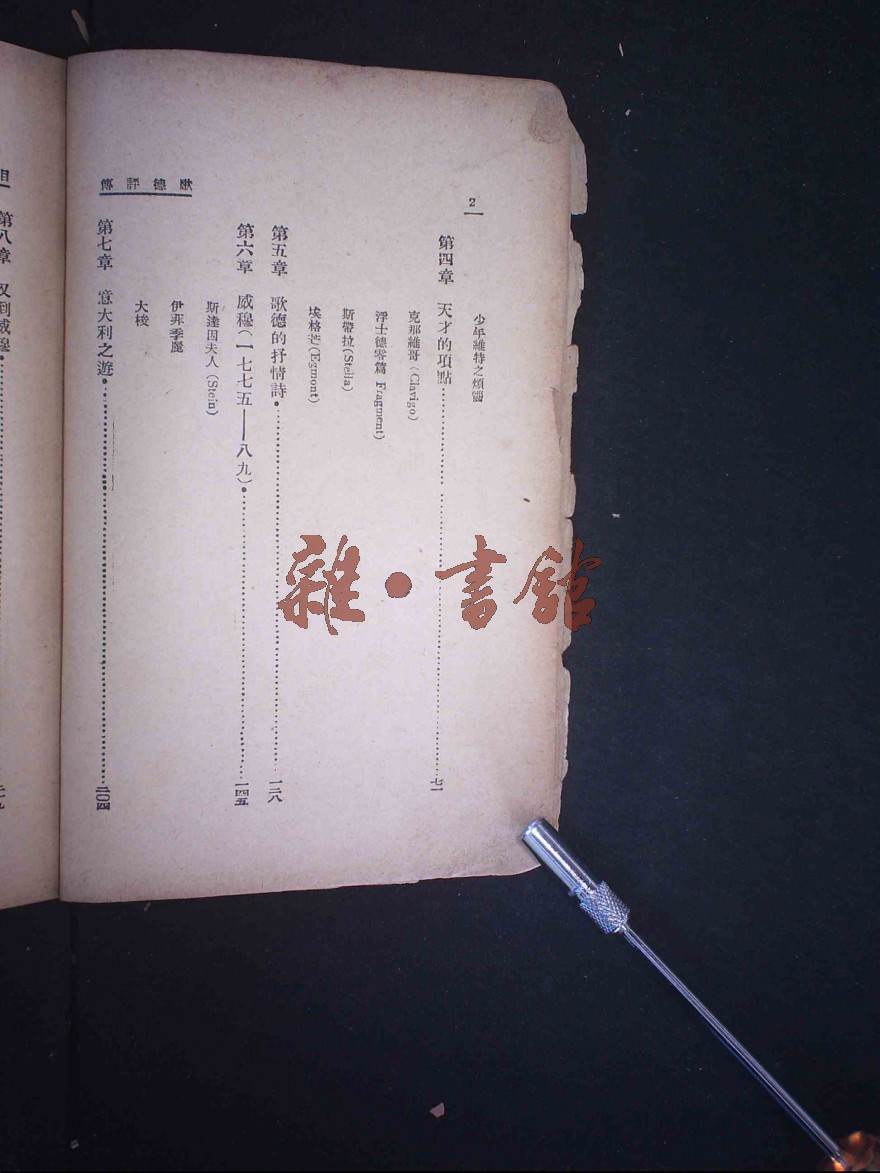 歌德評傳
2
少年維特之煩惱
第四章 天才的項點……七一
克那維哥(Clavigo)
浮士德零篇 Fragment)
斯帶拉(Stella)
埃格芒(Egmont)
第五章 歌德的抒情詩……一二八
第六章 威穆(一七七五——八九)……一四五
斯達因夫人(Stein)
伊菲季麗
大梭
第七章 意大利之遊……二〇四
第八章 又到威穆
雜·書館